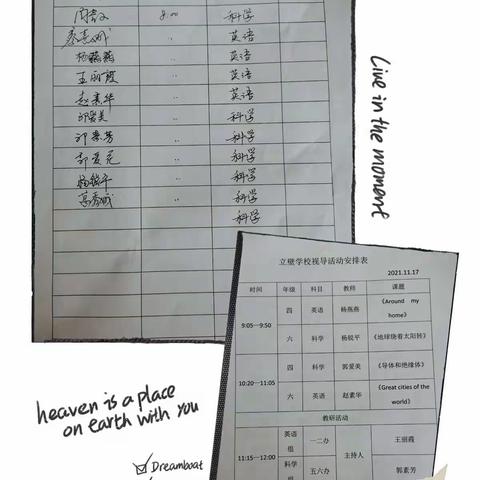 8:00 科学
英语
杨燕燕 英语
王丽霞 英语
赵素华 英语
郭爱美 科学
郭素芳 科学
科学
杨锐平 科学
科学
科学
Live in the moment
立壁学校视导活动安排表
2021.11.17
时间 年级 科目 教师 课题
9:05—9:50 四 英语 杨燕燕 《Around my home》
六 科学 杨锐平 《地球绕着太阳转》
10:20—11:05 四 科学 郭爱美 《导体和绝缘体》
六 英语 赵素华 《Great cities of the world》
教研活动
11:15—12:00 英语组 一二办 主持人 王丽霞
科学组 五六办 郭素芳
heaven is a place
on earth with you
Dreamboat